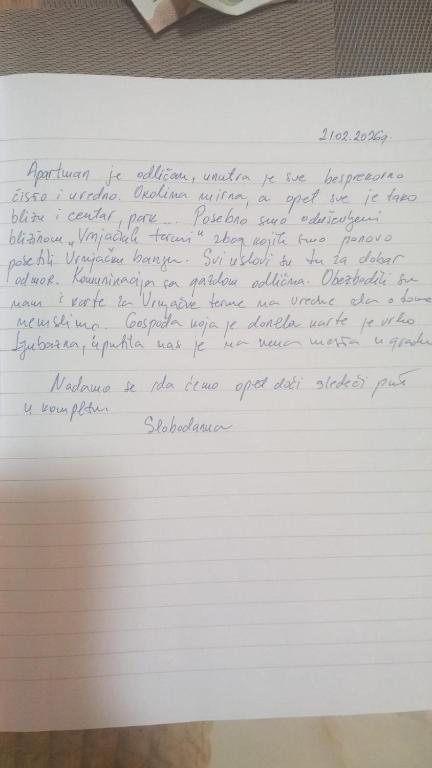 21.02.2026g.
Apartman je odličan, unutra je sve besprekorno
čisto i uredno. Okolina mirna, a opet sve je tako
blizu i centar, park... Posebno smo oduševljeni
blizinom „Vrnjačkih termi“ zbog kojih smo ponovo
posetili Vrnjačku banju. Svi uslovi su tu za dobar
odmor. Komunikacija sa gazdom odlična. Obezbedili su
nam i karte za Vrnjačke terme na vreme da o tome
nemislimo. Gospođa koja je donela karte je vrlo
ljubazna, uputila nas je na neka mesta u gradu
Nadamo se da ćemo opet doći sledeći put
u kompletu.
Slobodanka